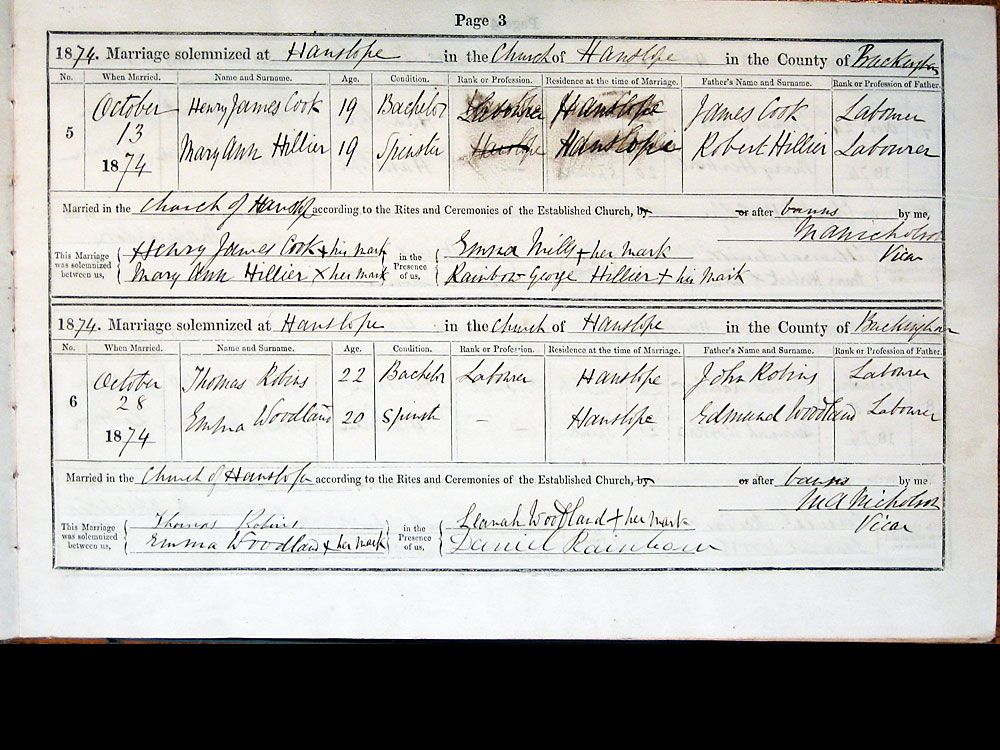 Page 3
1874. Marriage solemnized at Hanslope in the Church of Hanslope in the County of Buckingham
No. When Married. Name and Surname. Age. Condition. Rank or Profession. Residence at the time of Marriage. Father's Name and Surname. Rank or Profession of Father.
October Henry James Cook 19 Bachelor Labourer Hanslope James Cook Labourer
5 13
1874 Mary Ann Hillier 19 Spinster Hanslope Hanslope Robert Hillier Labourer
Married in the Church of Hanslope according to the Rites and Ceremonies of the Established Church, by or after banns by me,
M A Nicholson
Vicar
This Marriage was solemnized between us, Henry James Cook + his mark in the Presence of us, Emma Mills + her mark
Mary Ann Hillier x her mark Rainbow George Hillier + his mark
1874. Marriage solemnized at Hanslope in the Church of Hanslope in the County of Buckingham
No. When Married. Name and Surname. Age. Condition. Rank or Profession. Residence at the time of Marriage. Father's Name and Surname. Rank or Profession of Father.
October Thomas Robins 22 Bachelor Labourer Hanslope John Robins Labourer
6 28
1874 Emma Woodland 20 Spinst — Hanslope Edmund Woodland Labourer
Married in the Church of Hanslope according to the Rites and Ceremonies of the Established Church, by or after banns by me
M A Nicholson
Vicar
This Marriage was solemnized between us, Thomas Robins in the Presence of us, Leanah Woodland + her mark
Emma Woodland + her mark Daniel Rainbow